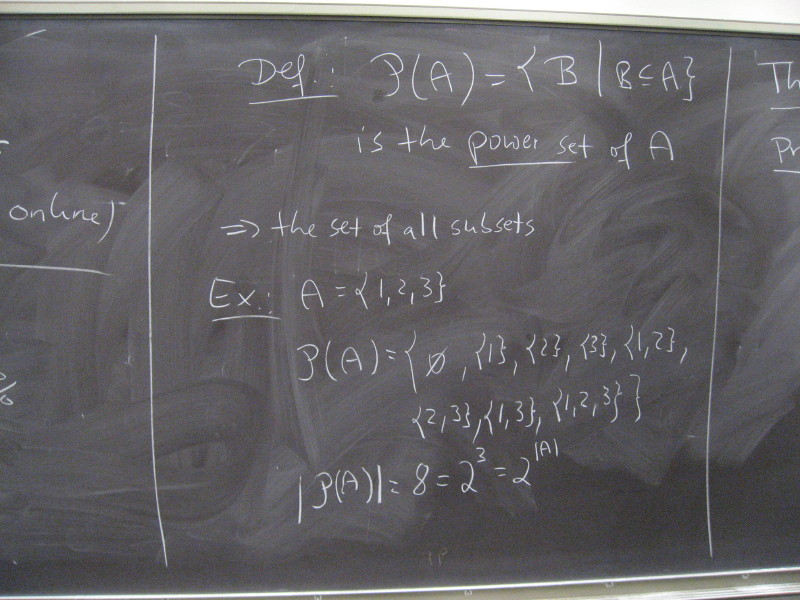 online)
%
Def.: P(A) = { B | B ⊆ A}
is the power set of A
=> the set of all subsets
Ex.: A = {1,2,3}
P(A) = { ∅, {1}, {2}, {3}, {1,2},
{2,3}, {1,3}, {1,2,3} }
|P(A)| = 8 = 2^3 = 2^|A|
Th
Pr